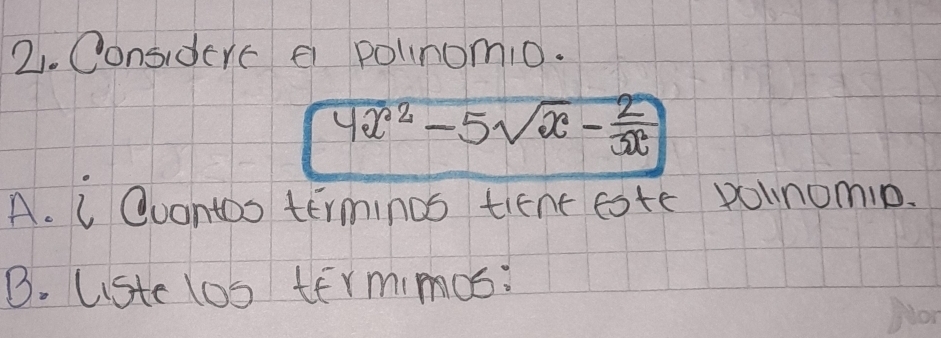 2. Considere el polinomio.
4x² - 5√x - 2/3x
A. ¿ Cuantos términos tiene este polinomio.
B. Liste los térmimos:
Nor